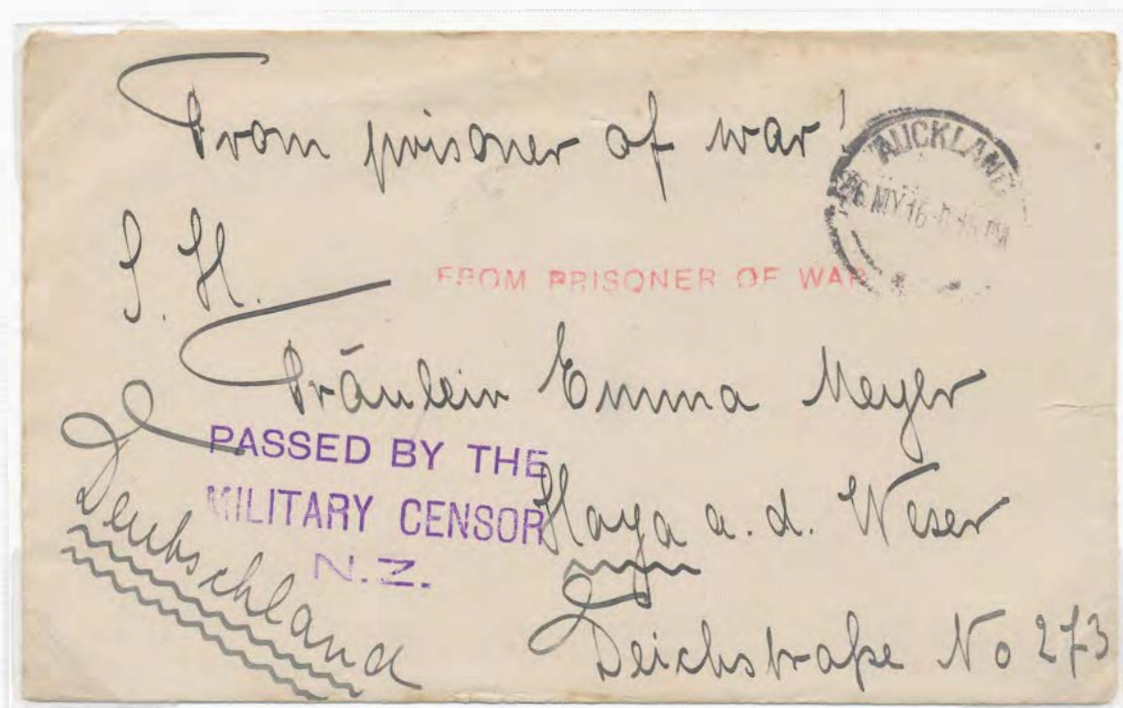 From prisoner of war!
AUCKLAND
26 MY 16
PM
S. H.
FROM PRISONER OF WAR
Fräulein Emma Meyer
PASSED BY THE
MILITARY CENSOR
N.Z.
Hoya a. d. Weser
Deutschland
Deichstraße No 273